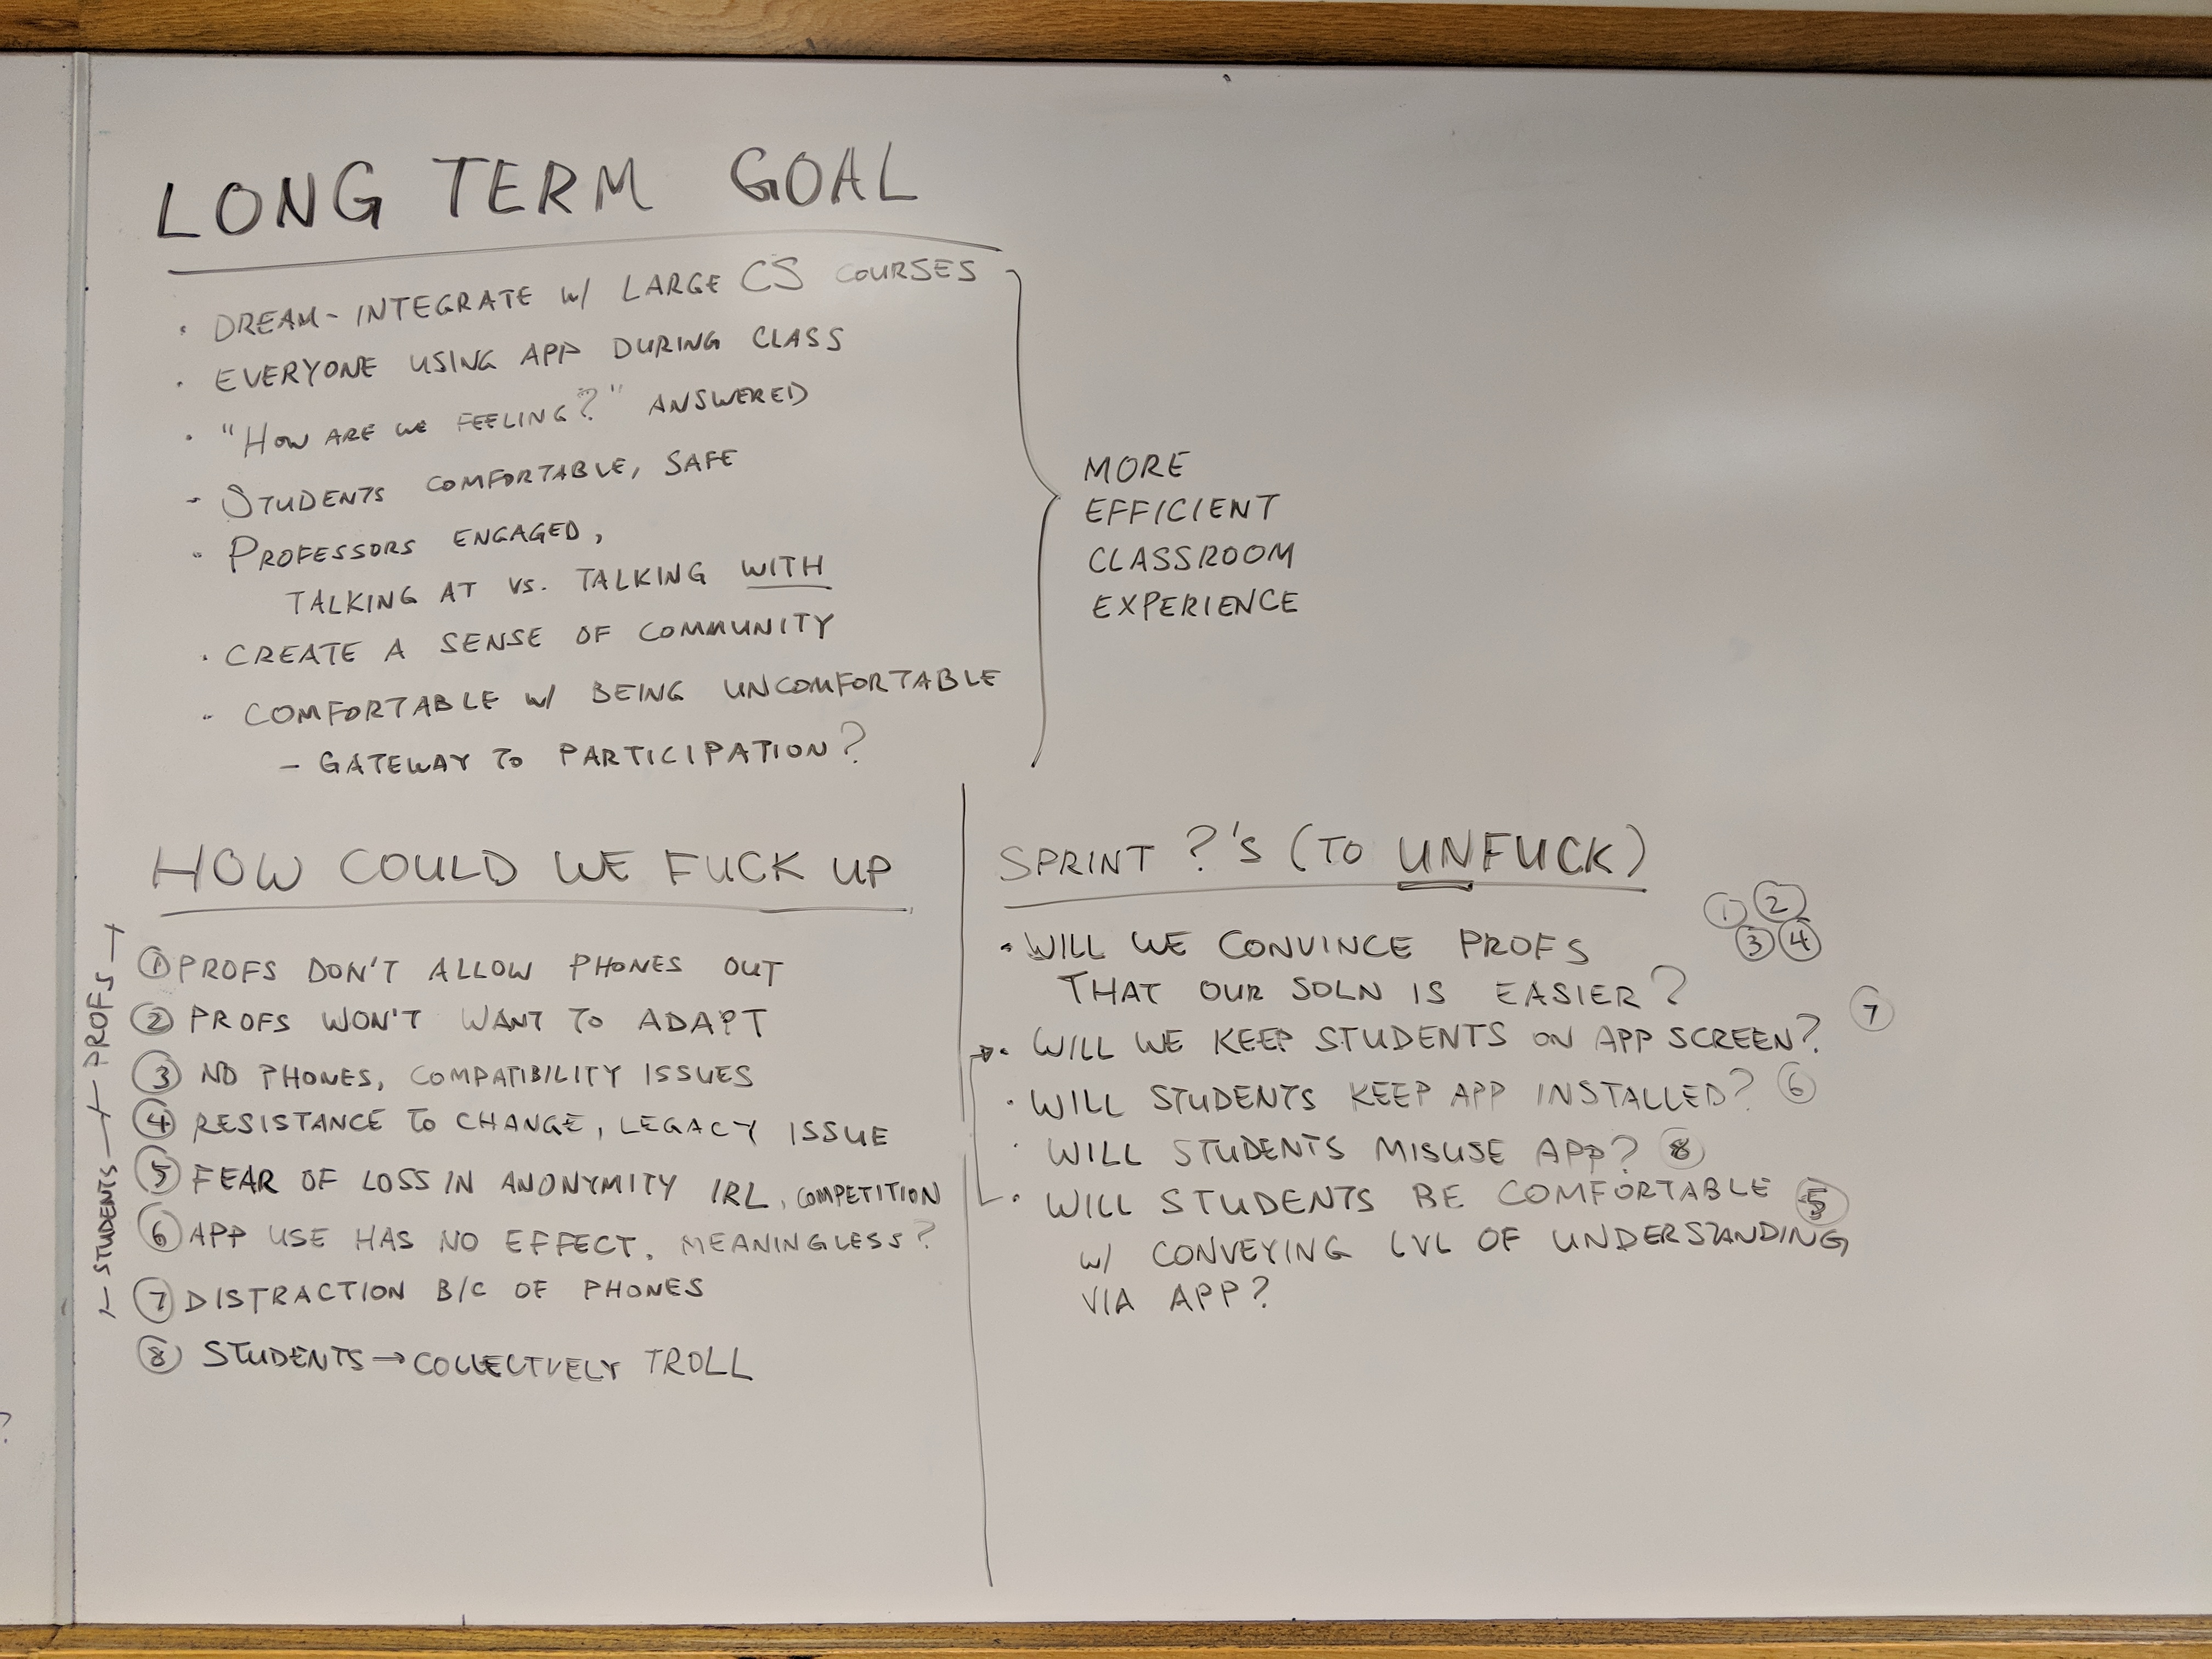 LONG TERM GOAL
· DREAM - INTEGRATE w/ LARGE CS COURSES
· EVERYONE USING APP DURING CLASS
· "HOW ARE WE FEELING?" ANSWERED
- STUDENTS COMFORTABLE, SAFE
· PROFESSORS ENGAGED,
TALKING AT VS. TALKING WITH
· CREATE A SENSE OF COMMUNITY
· COMFORTABLE w/ BEING UNCOMFORTABLE
- GATEWAY TO PARTICIPATION?
MORE
EFFICIENT
CLASSROOM
EXPERIENCE
HOW COULD WE FUCK UP
PROFS
STUDENTS
① PROFS DON'T ALLOW PHONES OUT
② PROFS WON'T WANT TO ADAPT
③ NO PHONES, COMPATIBILITY ISSUES
④ RESISTANCE TO CHANGE, LEGACY ISSUE
⑤ FEAR OF LOSS IN ANONYMITY IRL, COMPETITION
⑥ APP USE HAS NO EFFECT. MEANINGLESS?
⑦ DISTRACTION B/C OF PHONES
⑧ STUDENTS → COLLECTIVELY TROLL
SPRINT ?'S (TO UNFUCK)
· WILL WE CONVINCE PROFS ① ② ③ ④
THAT OUR SOLN IS EASIER?
· WILL WE KEEP STUDENTS ON APP SCREEN? ⑦
· WILL STUDENTS KEEP APP INSTALLED? ⑥
· WILL STUDENTS MISUSE APP? ⑧
· WILL STUDENTS BE COMFORTABLE ⑤
w/ CONVEYING LVL OF UNDERSTANDING
VIA APP?
?